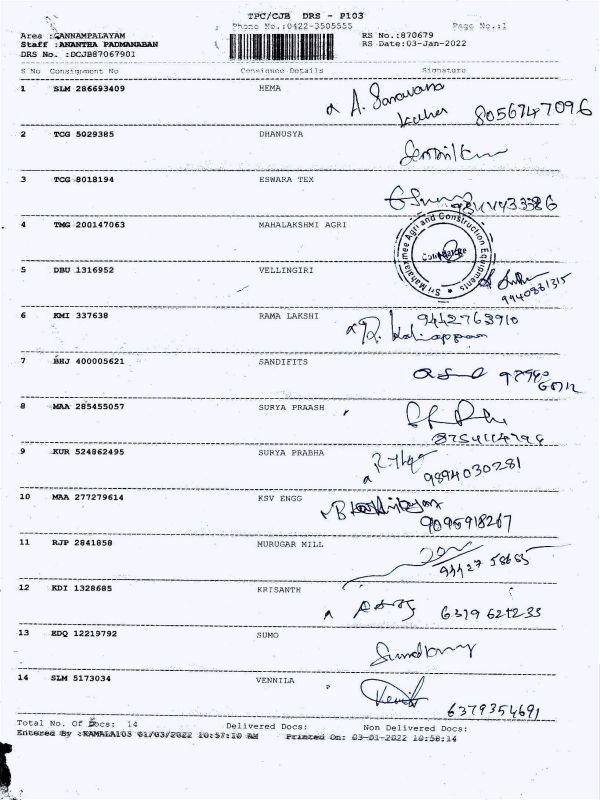 TPC/CJB DRS - P103
Phone No.:0422-3505555 Page No.:1
Area :GANNAMPALAYAM RS No.:870679
Staff :ANANTHA PADMANABAN RS Date:03-Jan-2022
DRS No. :DCJB87067901
S No Consignment No Consignee Details Signature
1 SLM 286693409 HEMA A. Saravana
8056747096
2 TCG 5029385 DHANUSYA
3 TCG 8018194 ESWARA TEX
4 TMG 200147063 MAHALAKSHMI AGRI
Sri Mahalaxmee Agri and Construction Equipments
Coimbatore
5 DBU 1316952 VELLINGIRI
9940831315
6 KMI 337638 RAMA LAKSHI 9442763910
R. Kaliappan
7 BHJ 400005621 SANDIFITS
8 MAA 285455057 SURYA PRAASH
9 KUR 524862495 SURYA PRABHA
9894030281
10 MAA 277279614 KSV ENGG
9095918267
11 RJP 2841858 MURUGAR MILL
12 KDI 1328685 KRISANTH
13 EDQ 12219792 SUMO
14 SLM 5173034 VENNILA
6379354691
Total No. Of Docs: 14 Delivered Docs: Non Delivered Docs:
Entered By :KAMALA103 01/03/2022 10:57:10 AM Printed On: 03-01-2022 10:58:14